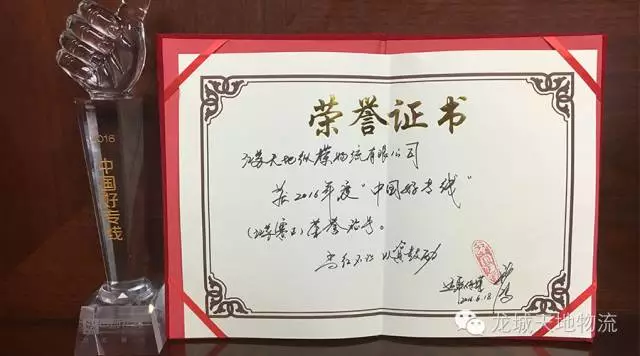 2016
中国好专线
荣誉证书
江苏天地纵横物流有限公司
获2016年度“中国好专线”
荣誉称号。
以资鼓励
2016.6.18
龙城天地物流